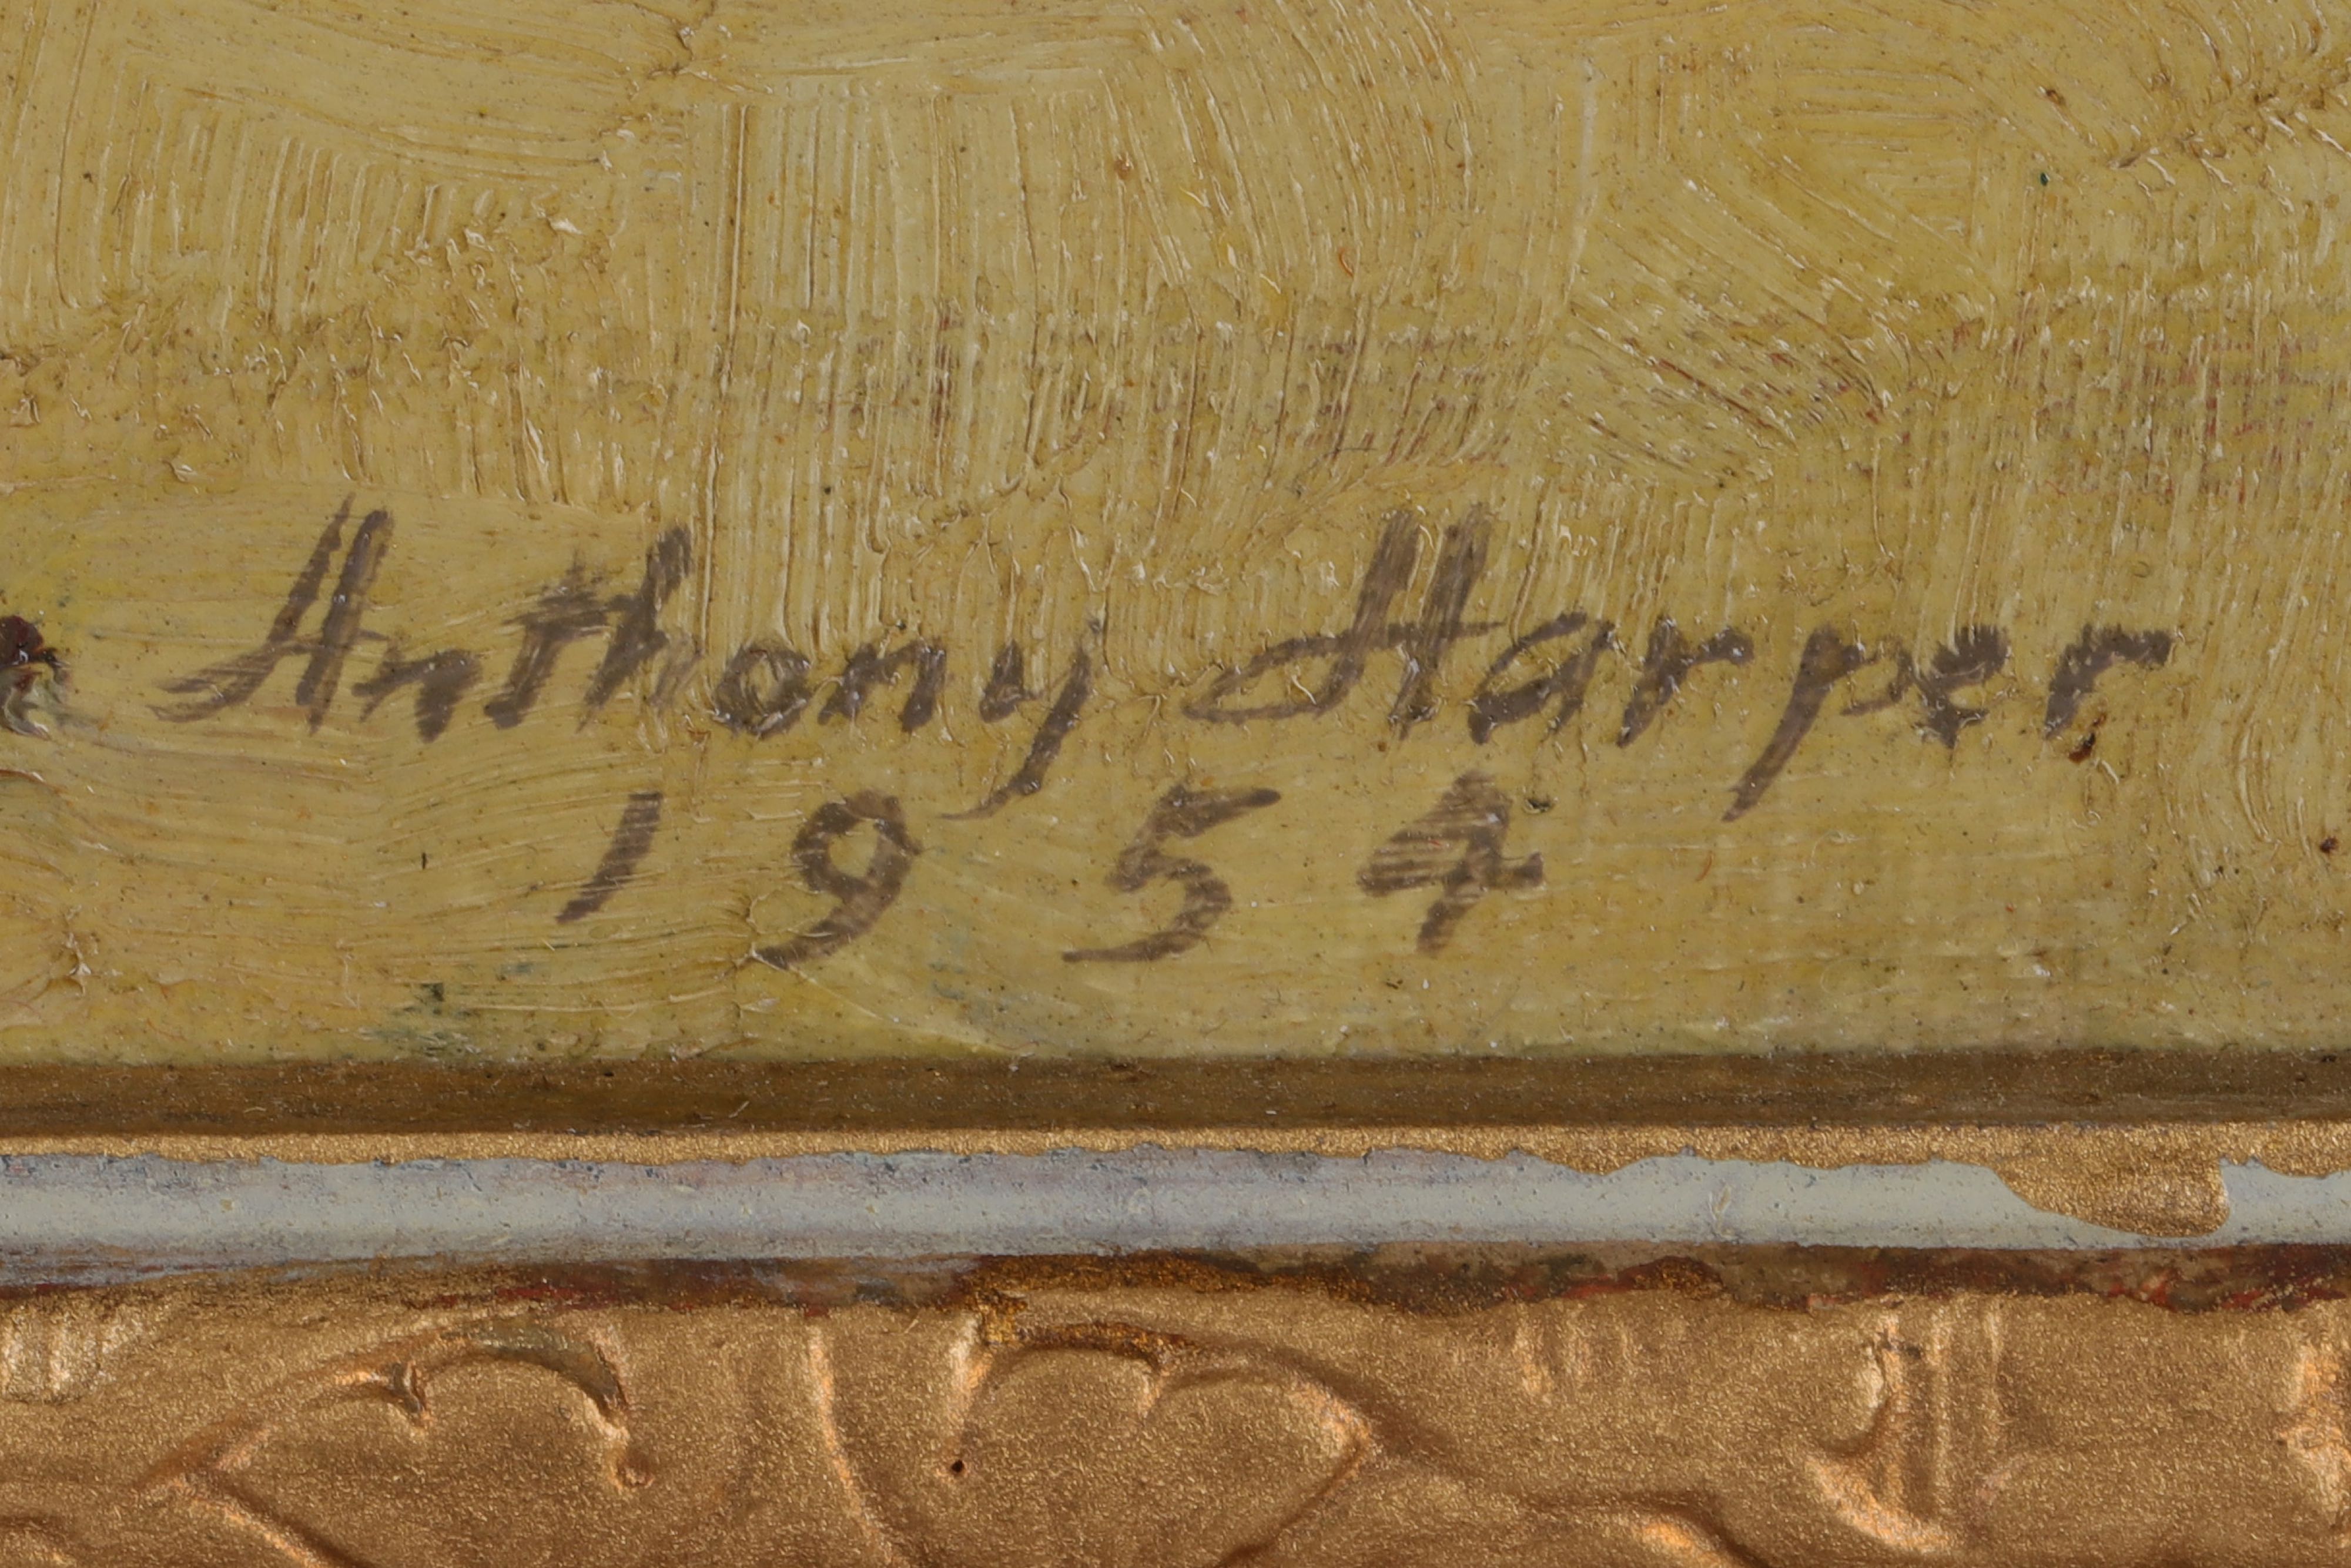 Anthony Harper
1954